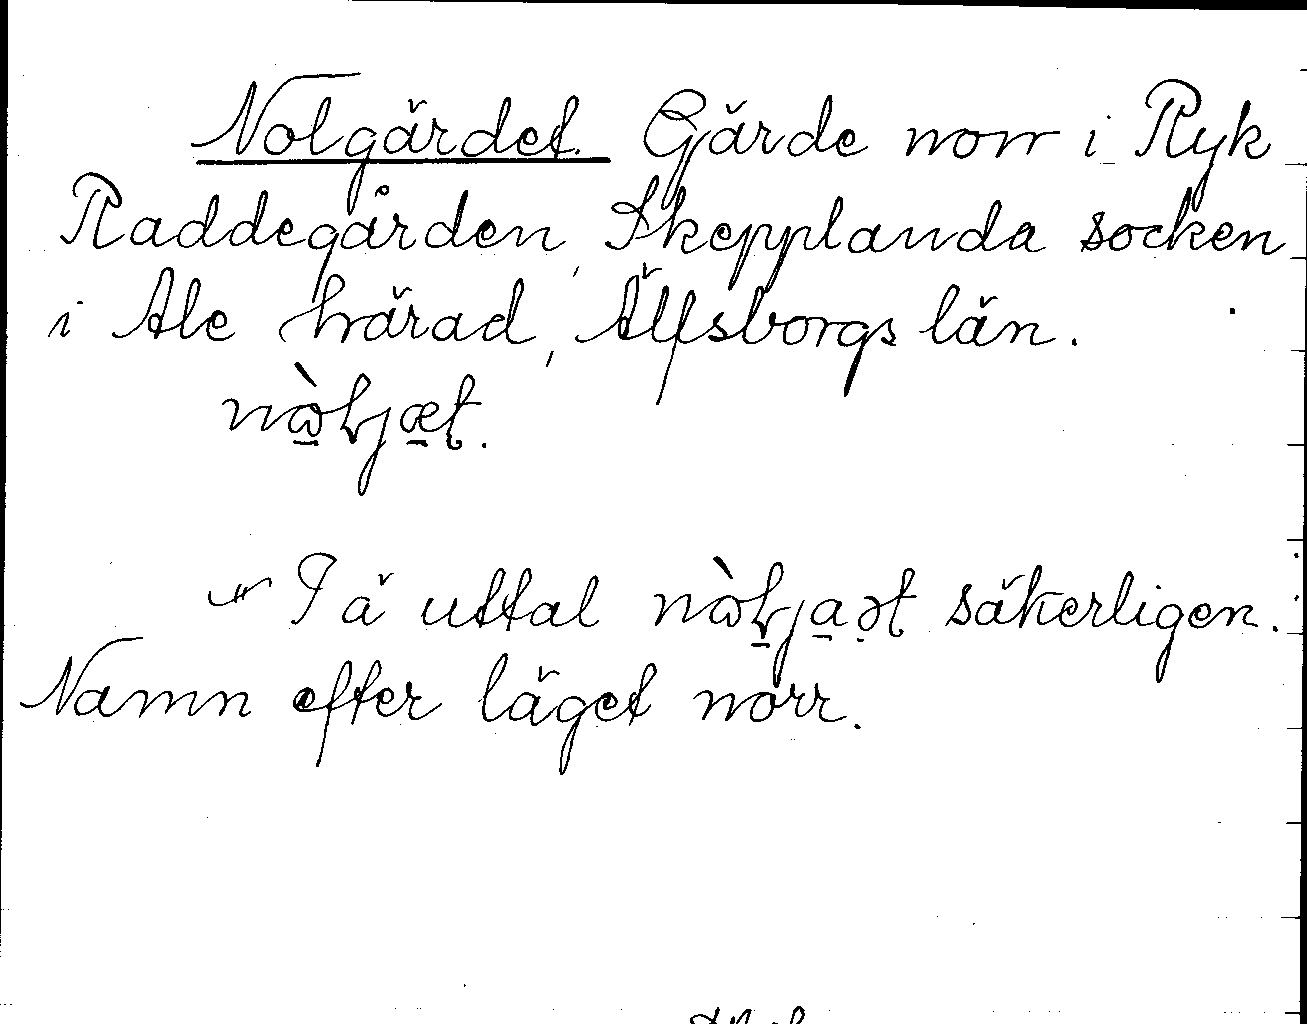 Nolgärdet. Gärde norr i Ryk
Raddegården, Skepplanda socken
i Ale härad, Älfsborgs län.
Få uttal säkerligen.
Namn efter läget norr.